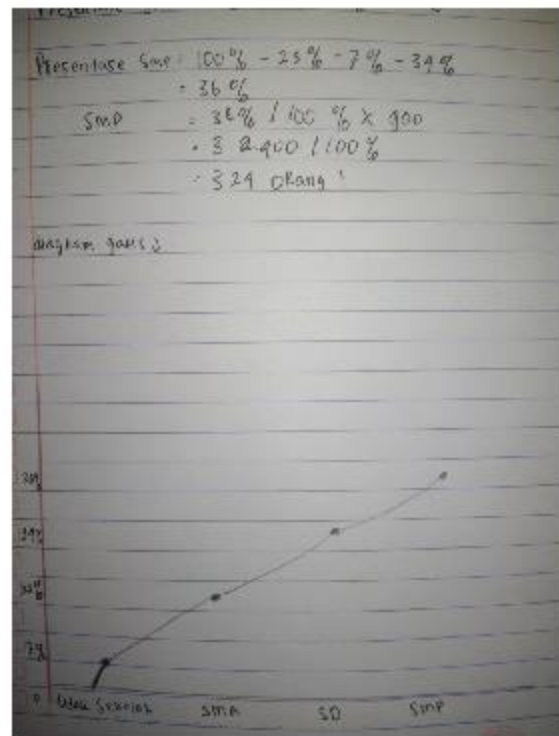 Presentase Smp : 100% - 23% - 7% - 34%
= 36%
SMP = 36% / 100% x 900
= 3 2.400 / 100%
= 324 orang
diagram garis :
7%
0
SMA SD SMP